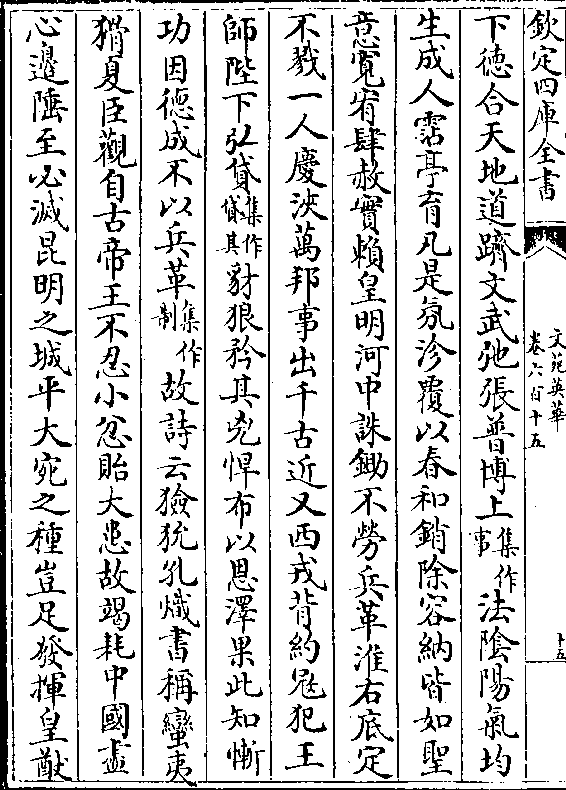 欽定四庫全書
文苑英華
卷六百十五
十五
下德合天地道躋文武弛張普博上集作事法陰陽氣均
生成人霑亭育凡是氛沴覆以春和銷除容納皆如聖
意寛宥肆赦實頼皇明河中誅鋤不勞兵革淮右底定
不戮一人慶浹萬邦事出千古近又西戎背約冦犯王
師陛下弘貸集作貸其豺狼矜其兇悍布以恩澤果此知慚
功因德成不以兵革集作制故詩云獫狁孔熾書稱蠻夷
猾夏臣觀自古帝王不忍小忿貽大患故竭耗中國盡
心邉陲至必滅昆明之城平大宛之種豈足發揮皇猷